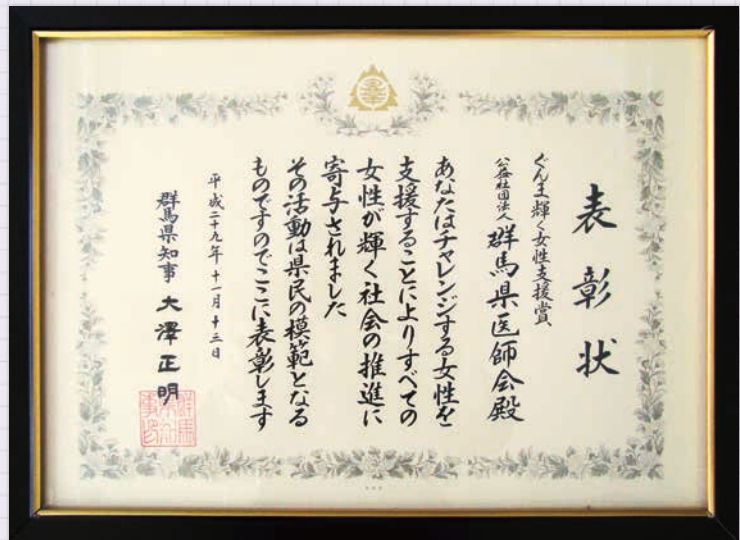 表彰状
ぐんま輝く女性支援賞
公益社団法人 群馬県医師会殿
あなたはチャレンジする女性を
支援することによりすべての
女性が輝く社会の推進に
寄与されました
その活動は県民の模範となる
ものですのでここに表彰します
平成二十九年十一月十三日
群馬県知事 大澤正明